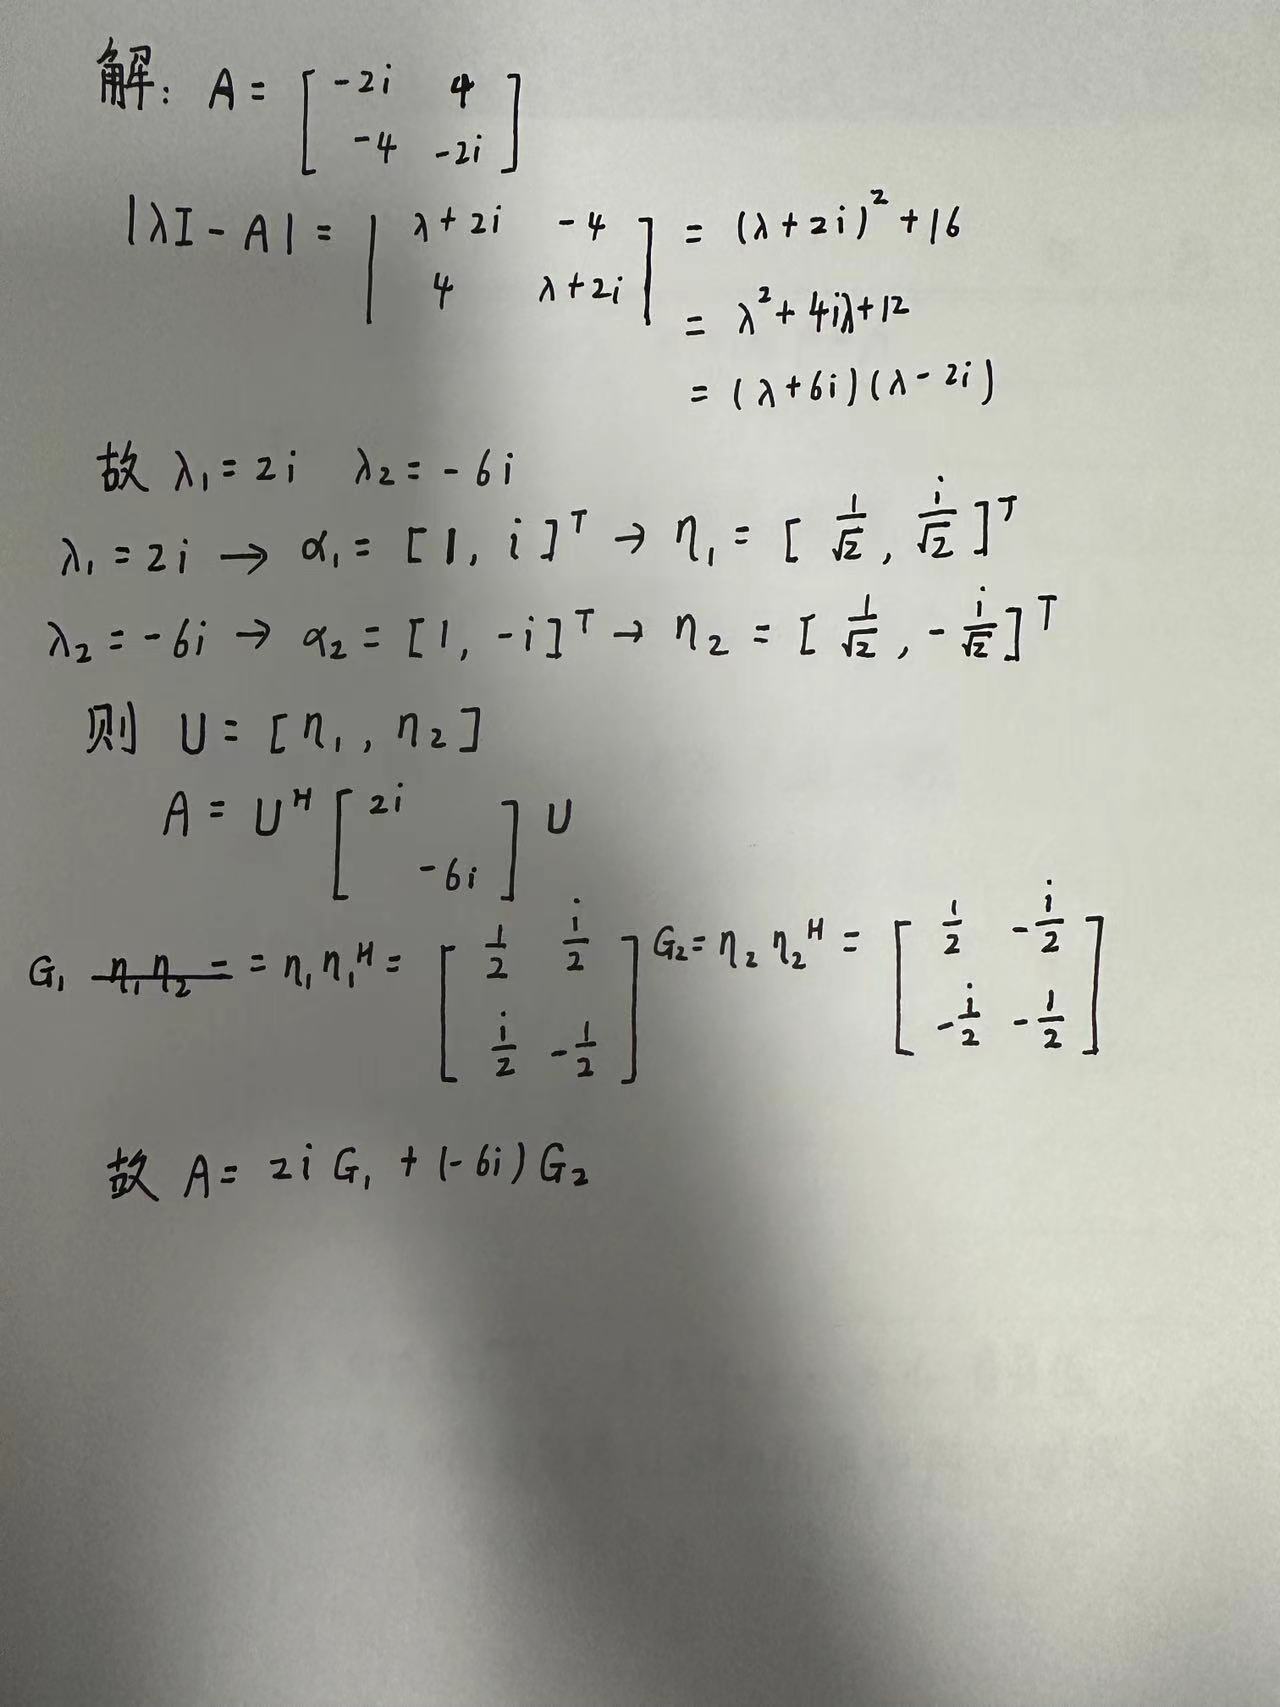 解: A = [ -2i 4
-4 -2i ]
|λI - A| = | λ+2i -4 = (λ+2i)² + 16
4 λ+2i | = λ² + 4iλ + 12
= (λ+6i)(λ-2i)
故 λ₁ = 2i λ₂ = -6i
λ₁ = 2i → α₁ = [1, i]ᵀ → η₁ = [ 1/√2 , i/√2 ]ᵀ
λ₂ = -6i → α₂ = [1, -i]ᵀ → η₂ = [ 1/√2 , - i/√2 ]ᵀ
则 U = [η₁, η₂]
A = Uᴴ [ 2i
-6i ] U
G₁ η₁ η₂ = = η₁ η₁ᴴ = [ 1/2 i/2 G₂ = η₂ η₂ᴴ = [ 1/2 -i/2
i/2 -1/2 ] -i/2 -1/2 ]
故 A = 2i G₁ + (-6i) G₂